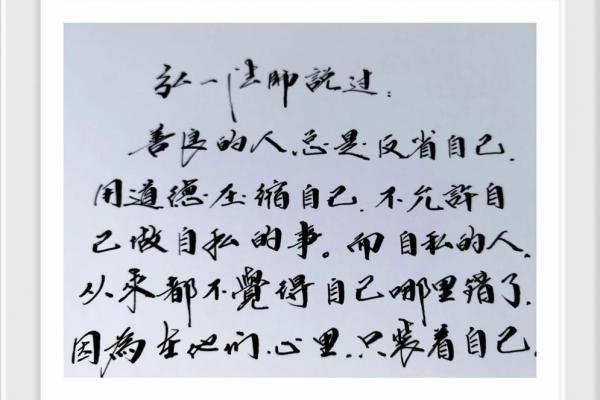 弘一法師説过:
善良的人.总是反省自己.
用道德压缩自己.不允許自
己做自私的事。而自私的人.
从来都不覺得自己哪里錯了.
因為在他们心里.只装着自己.